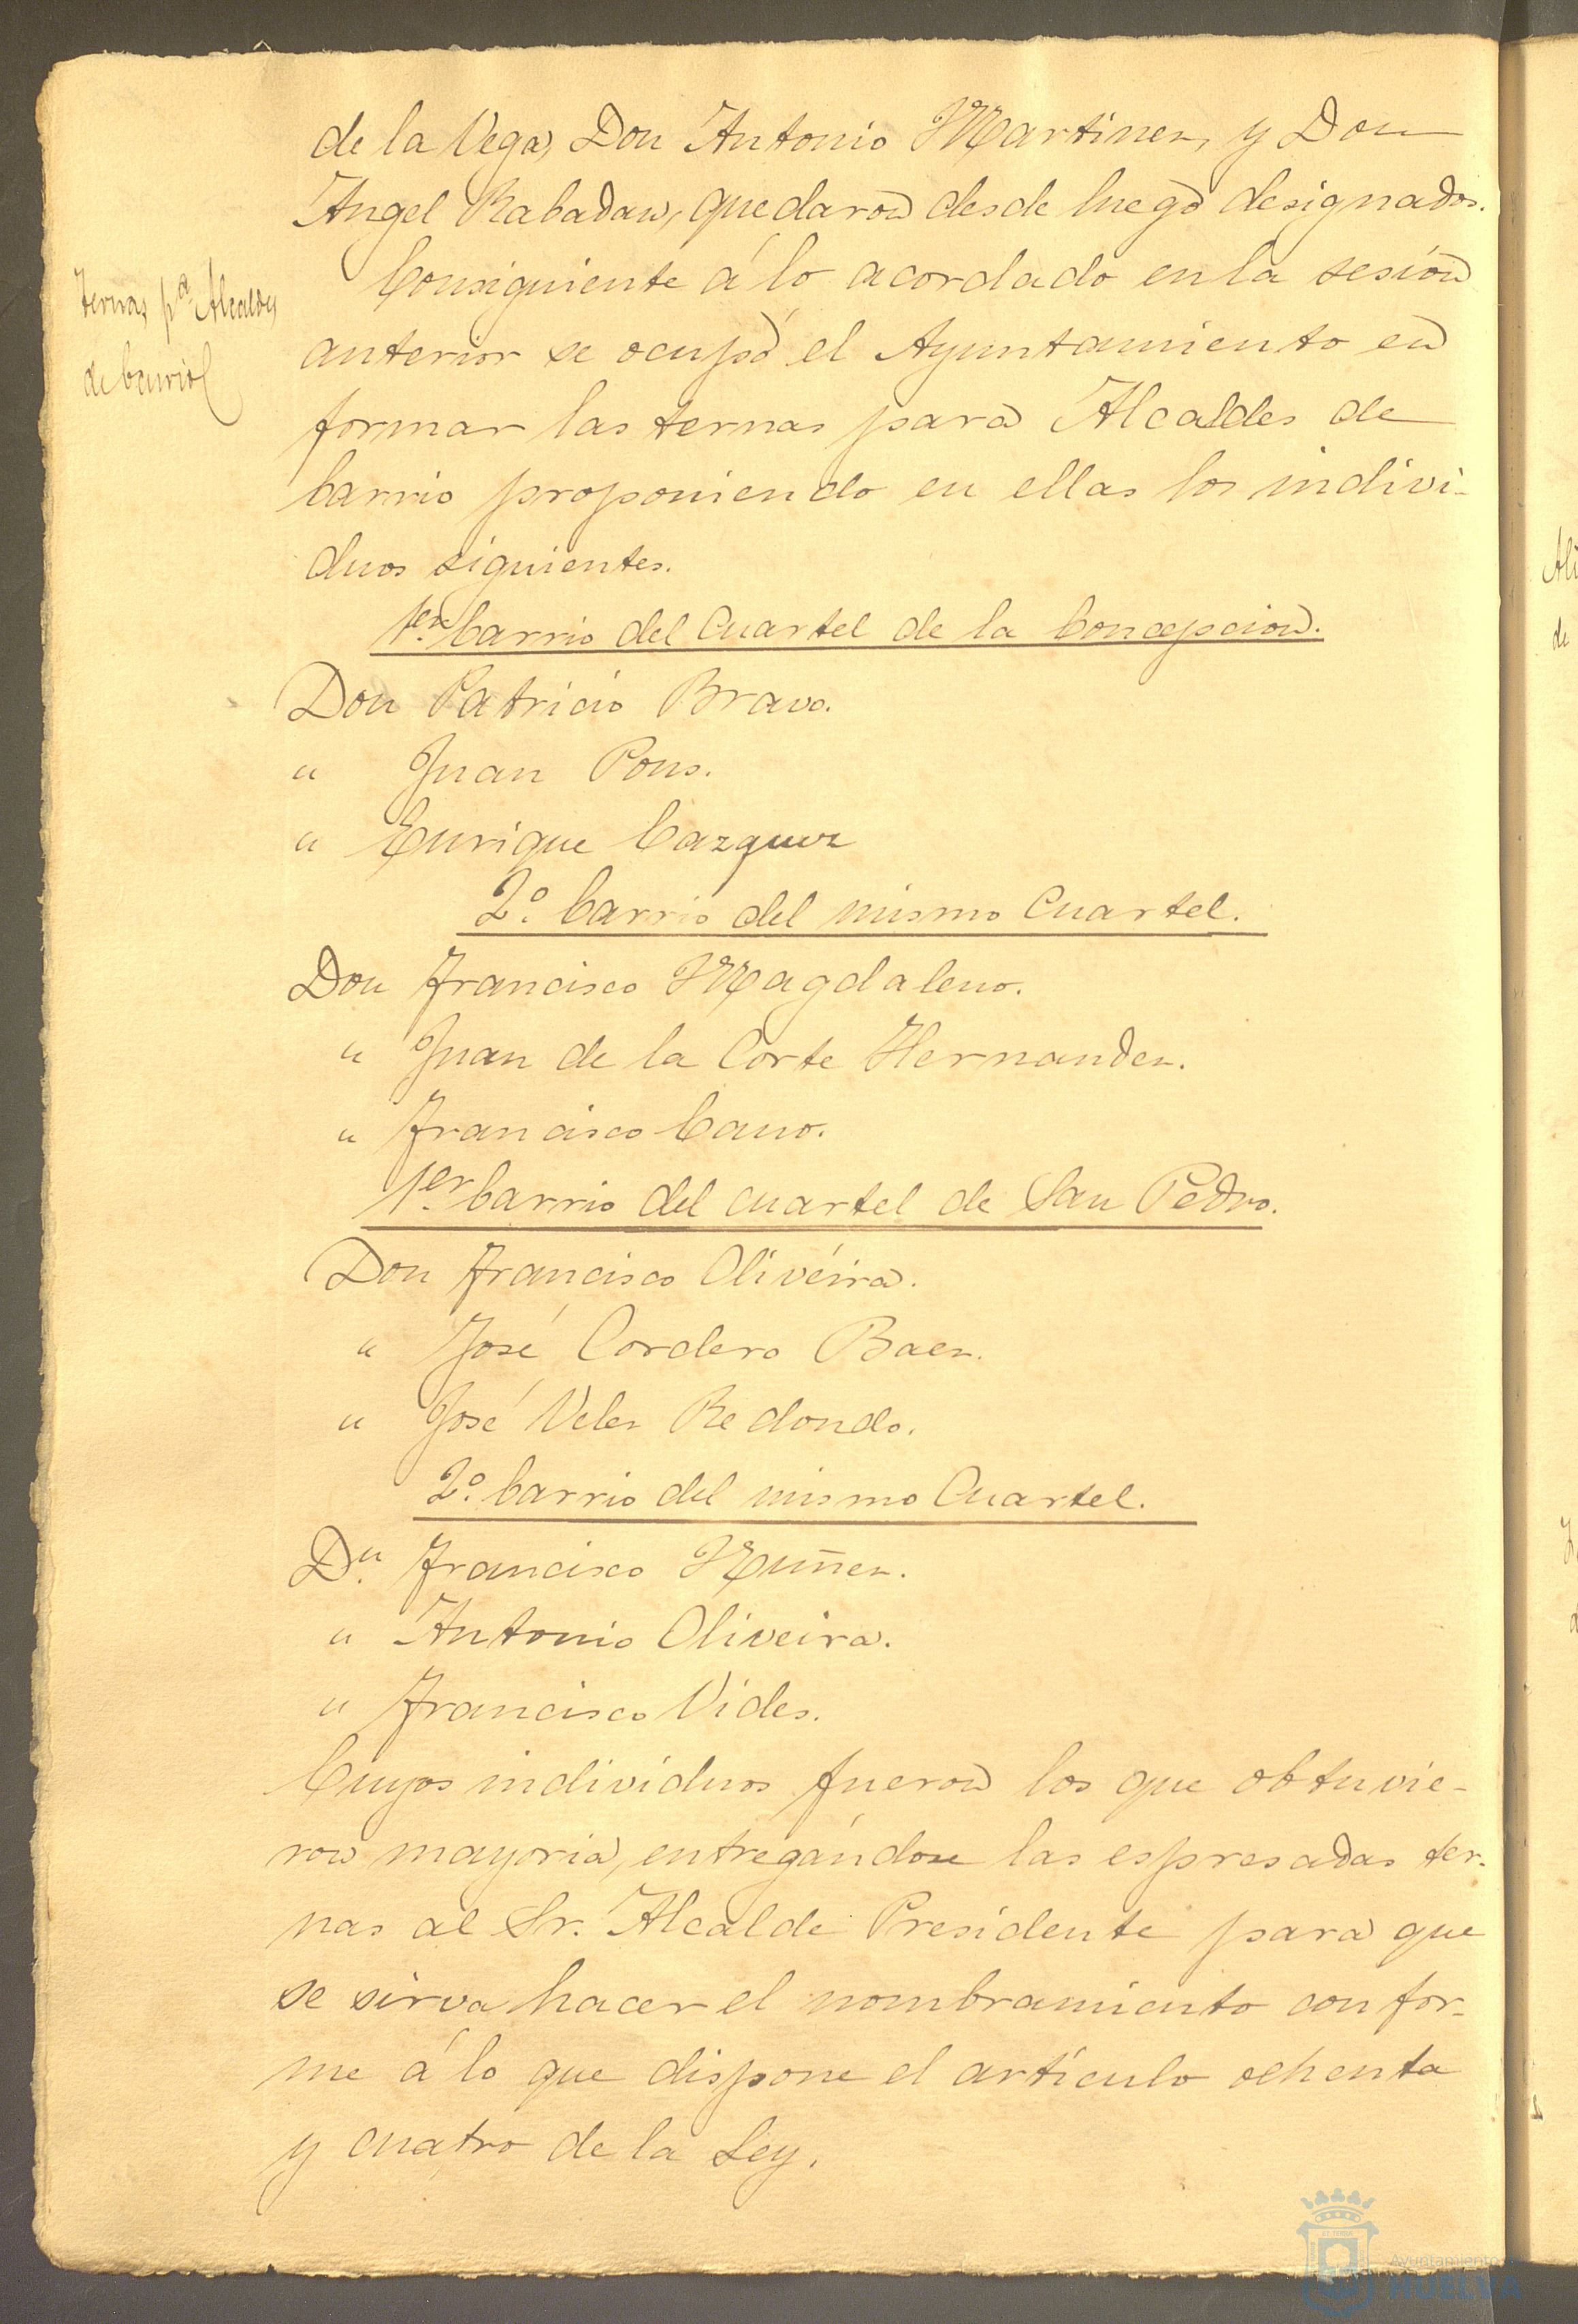 de la Vega, Don Antonio Martinez, y Don
Angel Rabadan, quedaron desde luego designados.
Ternas pª Alcaldes
de barrio
Consiguiente á lo acordado en la sesión
anterior se ocupó el Ayuntamiento en
formar las ternas para Alcaldes de
barrio proponiendo en ellas los indivi-
duos siguientes.
1er. barrio del Cuartel de la Concepcion.
Don Patricio Bravo.
" Juan Pons.
" Enrique Cazquez
2º. barrio del mismo Cuartel.
Don Francisco Magdaleno.
" Juan de la Corte Hernandez.
" Francisco Cano.
1er. barrio del cuartel de San Pedro.
Don Francisco Oliveira.
" José Cordero Baez.
" José Velez Redondo.
2º. barrio del mismo Cuartel.
Dn. Francisco Nuñez.
" Antonio Oliveira.
" Francisco Vides.
Cuyos individuos fueron los que obtuvie-
ron mayoria, entregándose las espresadas ter-
nas al Sr. Alcalde Presidente para que
se sirva hacer el nombramiento confor-
me á lo que dispone el artículo ochenta
y cuatro de la Ley.
Ayuntamiento de
HUELVA